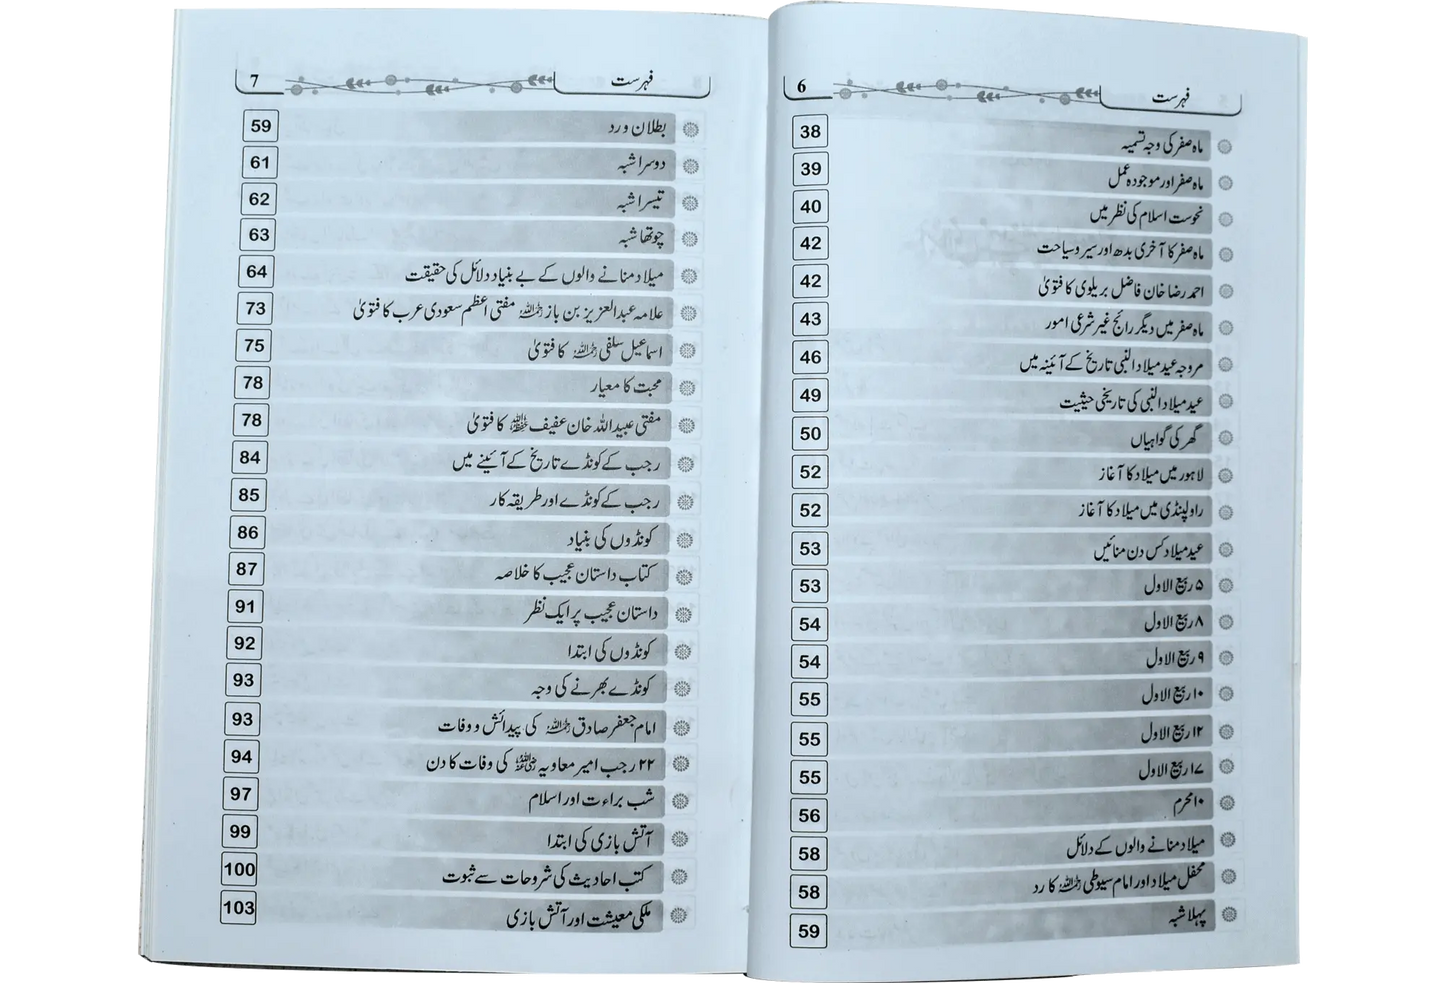 فہرست 6
ماہ صفر کی وجہ تسمیہ 38
ماہ صفر اور موجودہ عمل 39
نحوست اسلام کی نظر میں 40
ماہ صفر کا آخری بدھ اور سیر و سیاحت 42
احمد رضا خان فاضل بریلوی کا فتویٰ 42
ماہ صفر میں دیگر رائج غیر شرعی امور 43
مروجہ عید میلاد النبی تاریخ کے آئینہ میں 46
عید میلاد النبی کی تاریخی حیثیت 49
گھر کی گواہیاں 50
لاہور میں میلاد کا آغاز 52
راولپنڈی میں میلاد کا آغاز 52
عید میلاد کس دن منائیں 53
۵ ربیع الاول 53
۸ ربیع الاول 54
۹ ربیع الاول 54
۱۰ ربیع الاول 55
۱۲ ربیع الاول 55
۱۷ ربیع الاول 55
۱۰ محرم 56
میلاد منانے والوں کے دلائل 58
محفل میلاد اور امام سیوطی رحمہ اللہ کا رد 58
پہلا شبہ 59
فہرست 7
بطلان و رد 59
دوسرا شبہ 61
تیسرا شبہ 62
چوتھا شبہ 63
میلاد منانے والوں کے بے بنیاد دلائل کی حقیقت 64
علامہ عبدالعزیز بن باز رحمہ اللہ مفتی اعظم سعودی عرب کا فتویٰ 73
اسماعیل سلفی رحمہ اللہ کا فتویٰ 75
محبت کا معیار 78
مفتی عبیداللہ خان عفیف حفظہ اللہ کا فتویٰ 78
رجب کے کونڈے تاریخ کے آئینے میں 84
رجب کے کونڈے اور طریقہ کار 85
کونڈوں کی بنیاد 86
کتاب داستان عجیب کا خلاصہ 87
داستان عجیب پر ایک نظر 91
کونڈوں کی ابتدا 92
کونڈے بھرنے کی وجہ 93
امام جعفر صادق رحمہ اللہ کی پیدائش و وفات 93
۲۲ رجب امیر معاویہ رضی اللہ عنہ کی وفات کا دن 94
شب براءت اور اسلام 97
آتش بازی کی ابتدا 99
کتب احادیث کی شروحات سے ثبوت 100
ملکی معیشت اور آتش بازی 103